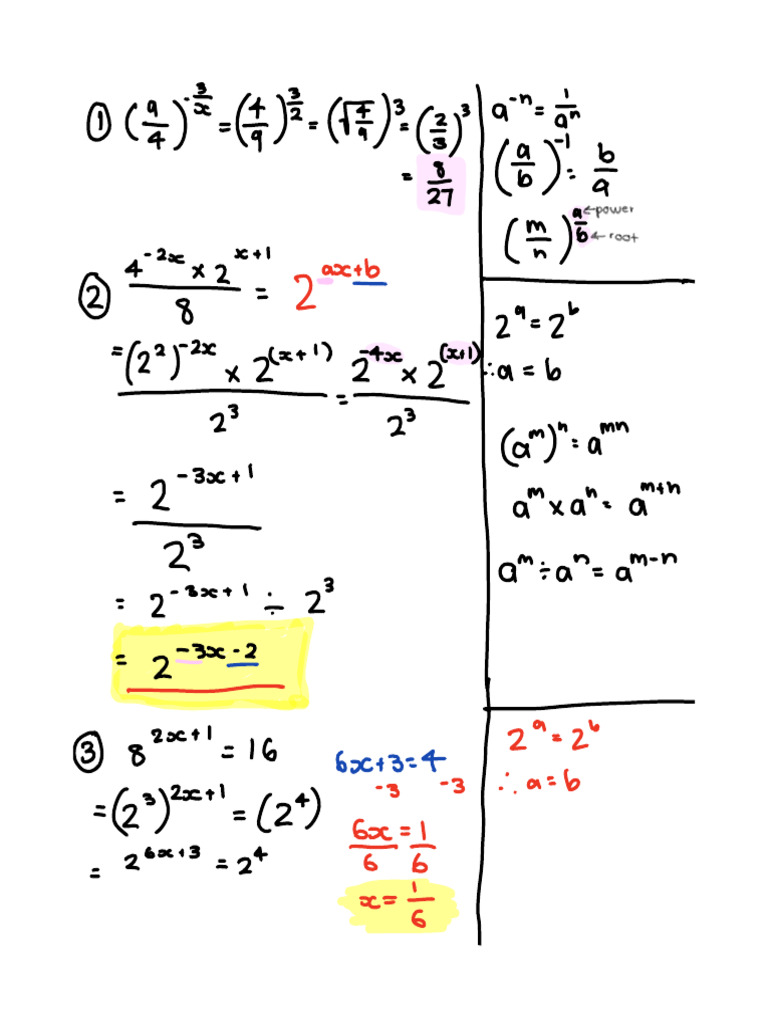 ① (9/4)^(-3/x) = (4/9)^(3/2) = (√(4/9))^3 = (2/3)^3
= 8/27
a^(-n) = 1/a^n
(a/b)^(-1) = b/a
(m/n)^(a/b) a ← power b ← root
② (4^(-2x) × 2^(x+1))/8 = 2^(ax+b)
= ((2^2)^(-2x) × 2^((x+1)))/2^3 = (2^(-4x) × 2^((x+1)))/2^3
= 2^(-3x+1)/2^3
= 2^(-3x+1) ÷ 2^3
= 2^(-3x-2)
2^a = 2^b
∴ a = b
(a^m)^n = a^(mn)
a^m × a^n = a^(m+n)
a^m ÷ a^n = a^(m-n)
③ 8^(2x+1) = 16
= (2^3)^(2x+1) = (2^4)
= 2^(6x+3) = 2^4
6x+3 = 4
-3 -3
6x/6 = 1/6
x = 1/6
2^a = 2^b
∴ a = b